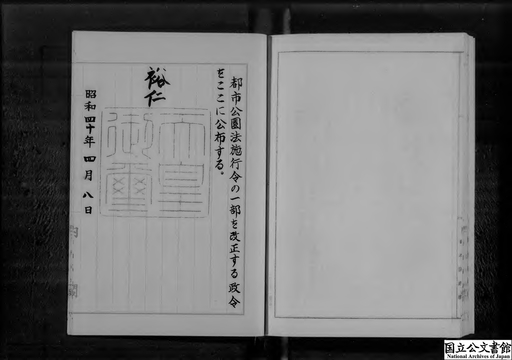 都市公園法施行令の一部を改正する政令
をここに公布する。
裕仁
天皇
御璽
昭和四十年四月八日
国立公文書館
National Archives of Japan